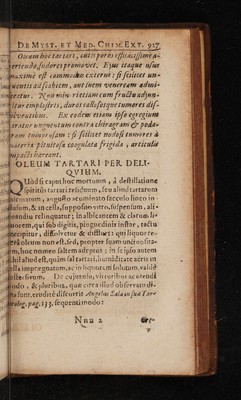 DE MYST. ET MED. CHIM. EXT. 927
Oleum hoc tartari, cutis poros efficacissime a-
periendo sudores promovet. Ejus itaque usus
maxime est commodus externè: si scilicet un-
guentis ad scabiem, aut luem veneream admi-
scetur. Non min° etiam cum fructu adjun-
gitur emplastris, duros callososque tumores dis-
solventibus. Ex eodem etiam ipso egregium
paratur unguentum contra chiragram & poda-
gram tumorosam: si scilicet nodosi tumores à
materia pituitosa coagulata frigida, articulis
impacti haereant.
OLEUM TARTARI PER DELI-
QVIUM.
QUòd si caput hoc mortuum, à destillatione
spiritus tartari relictum, seu aliud tartarum
calcinatum, angusto acuminato sacculo lineo in-
ditum, & in cella, supposito vitro, suspensum, ali-
quandiu relinquatur; in albicantem & clarum li-
quorem, qui sub digitis, pinguedinis instar, tactu
percipitur, dissolvetur & diffluet: qui liquor re-
verà oleum non est, sed, propter suam unctuosita-
tem, hoc nomen saltem adeptus: In se ipso autem
nihil aliud est, quàm sal tartari, humiditate aëris in
cella impraegnatum, ac in liquorem solutum, valde
austerum. De cujus usu, viribus ac utendi
modo, & pluribus, quae circa illud observatu di-
gna sunt, eruditè disserit Angelus Sala in sua Tar-
tarolog. pag. 133. sequenti modo:
Nnn 2